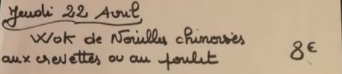 Jeudi 22 Avril
Wok de Nouilles chinoises
aux crevettes ou au poulet 8€